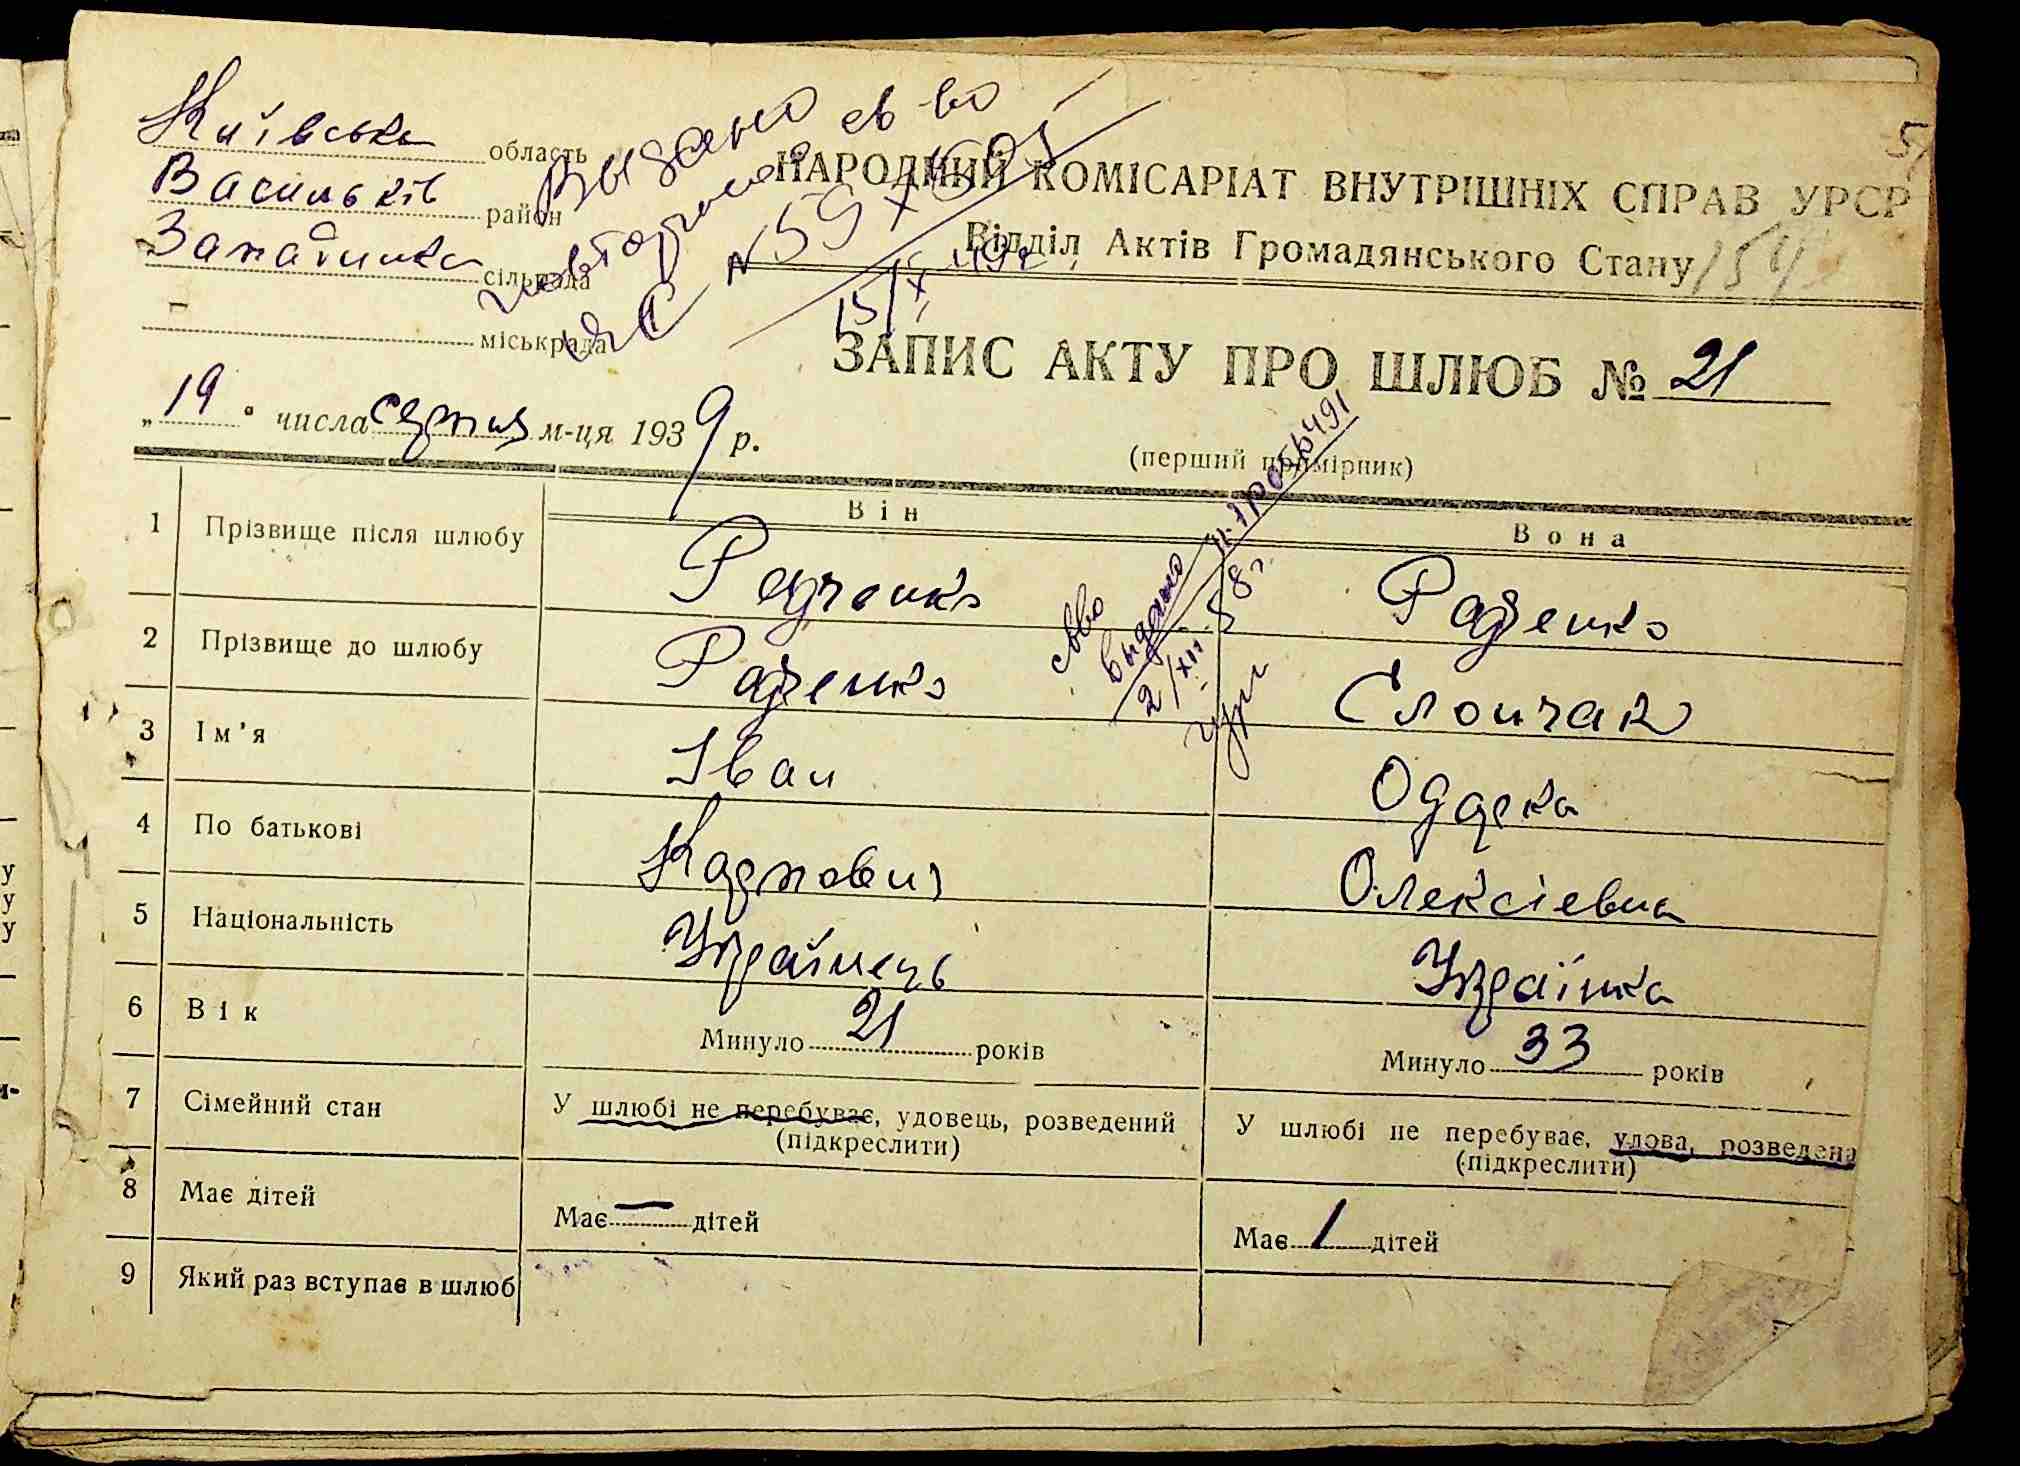 Київська область
Васильків район
сільрада
міськрада
Выдано
повторное св во
15/X 49г
НАРОДНИЙ КОМІСАРІАТ ВНУТРІШНІХ СПРАВ УРСР
Відділ Актів Громадянського Стану
154
ЗАПИС АКТУ ПРО ШЛЮБ № 21
„19" числа серпня м-ця 1939 р.
(перший примірник)
Він Вона
св во
выдано
2/XII 58г.
1 Прізвище після шлюбу Радченко Радченко
2 Прізвище до шлюбу Радченко
3 Ім'я Іван Одарка
4 По батькові Карпович Олексієвна
5 Національність Українець Українка
6 Вік Минуло 21 років Минуло 33 років
7 Сімейний стан У шлюбі не перебуває, удовець, розведений (підкреслити) У шлюбі не перебуває, удова, розведена (підкреслити)
8 Має дітей Має — дітей Має 1 дітей
9 Який раз вступає в шлюб